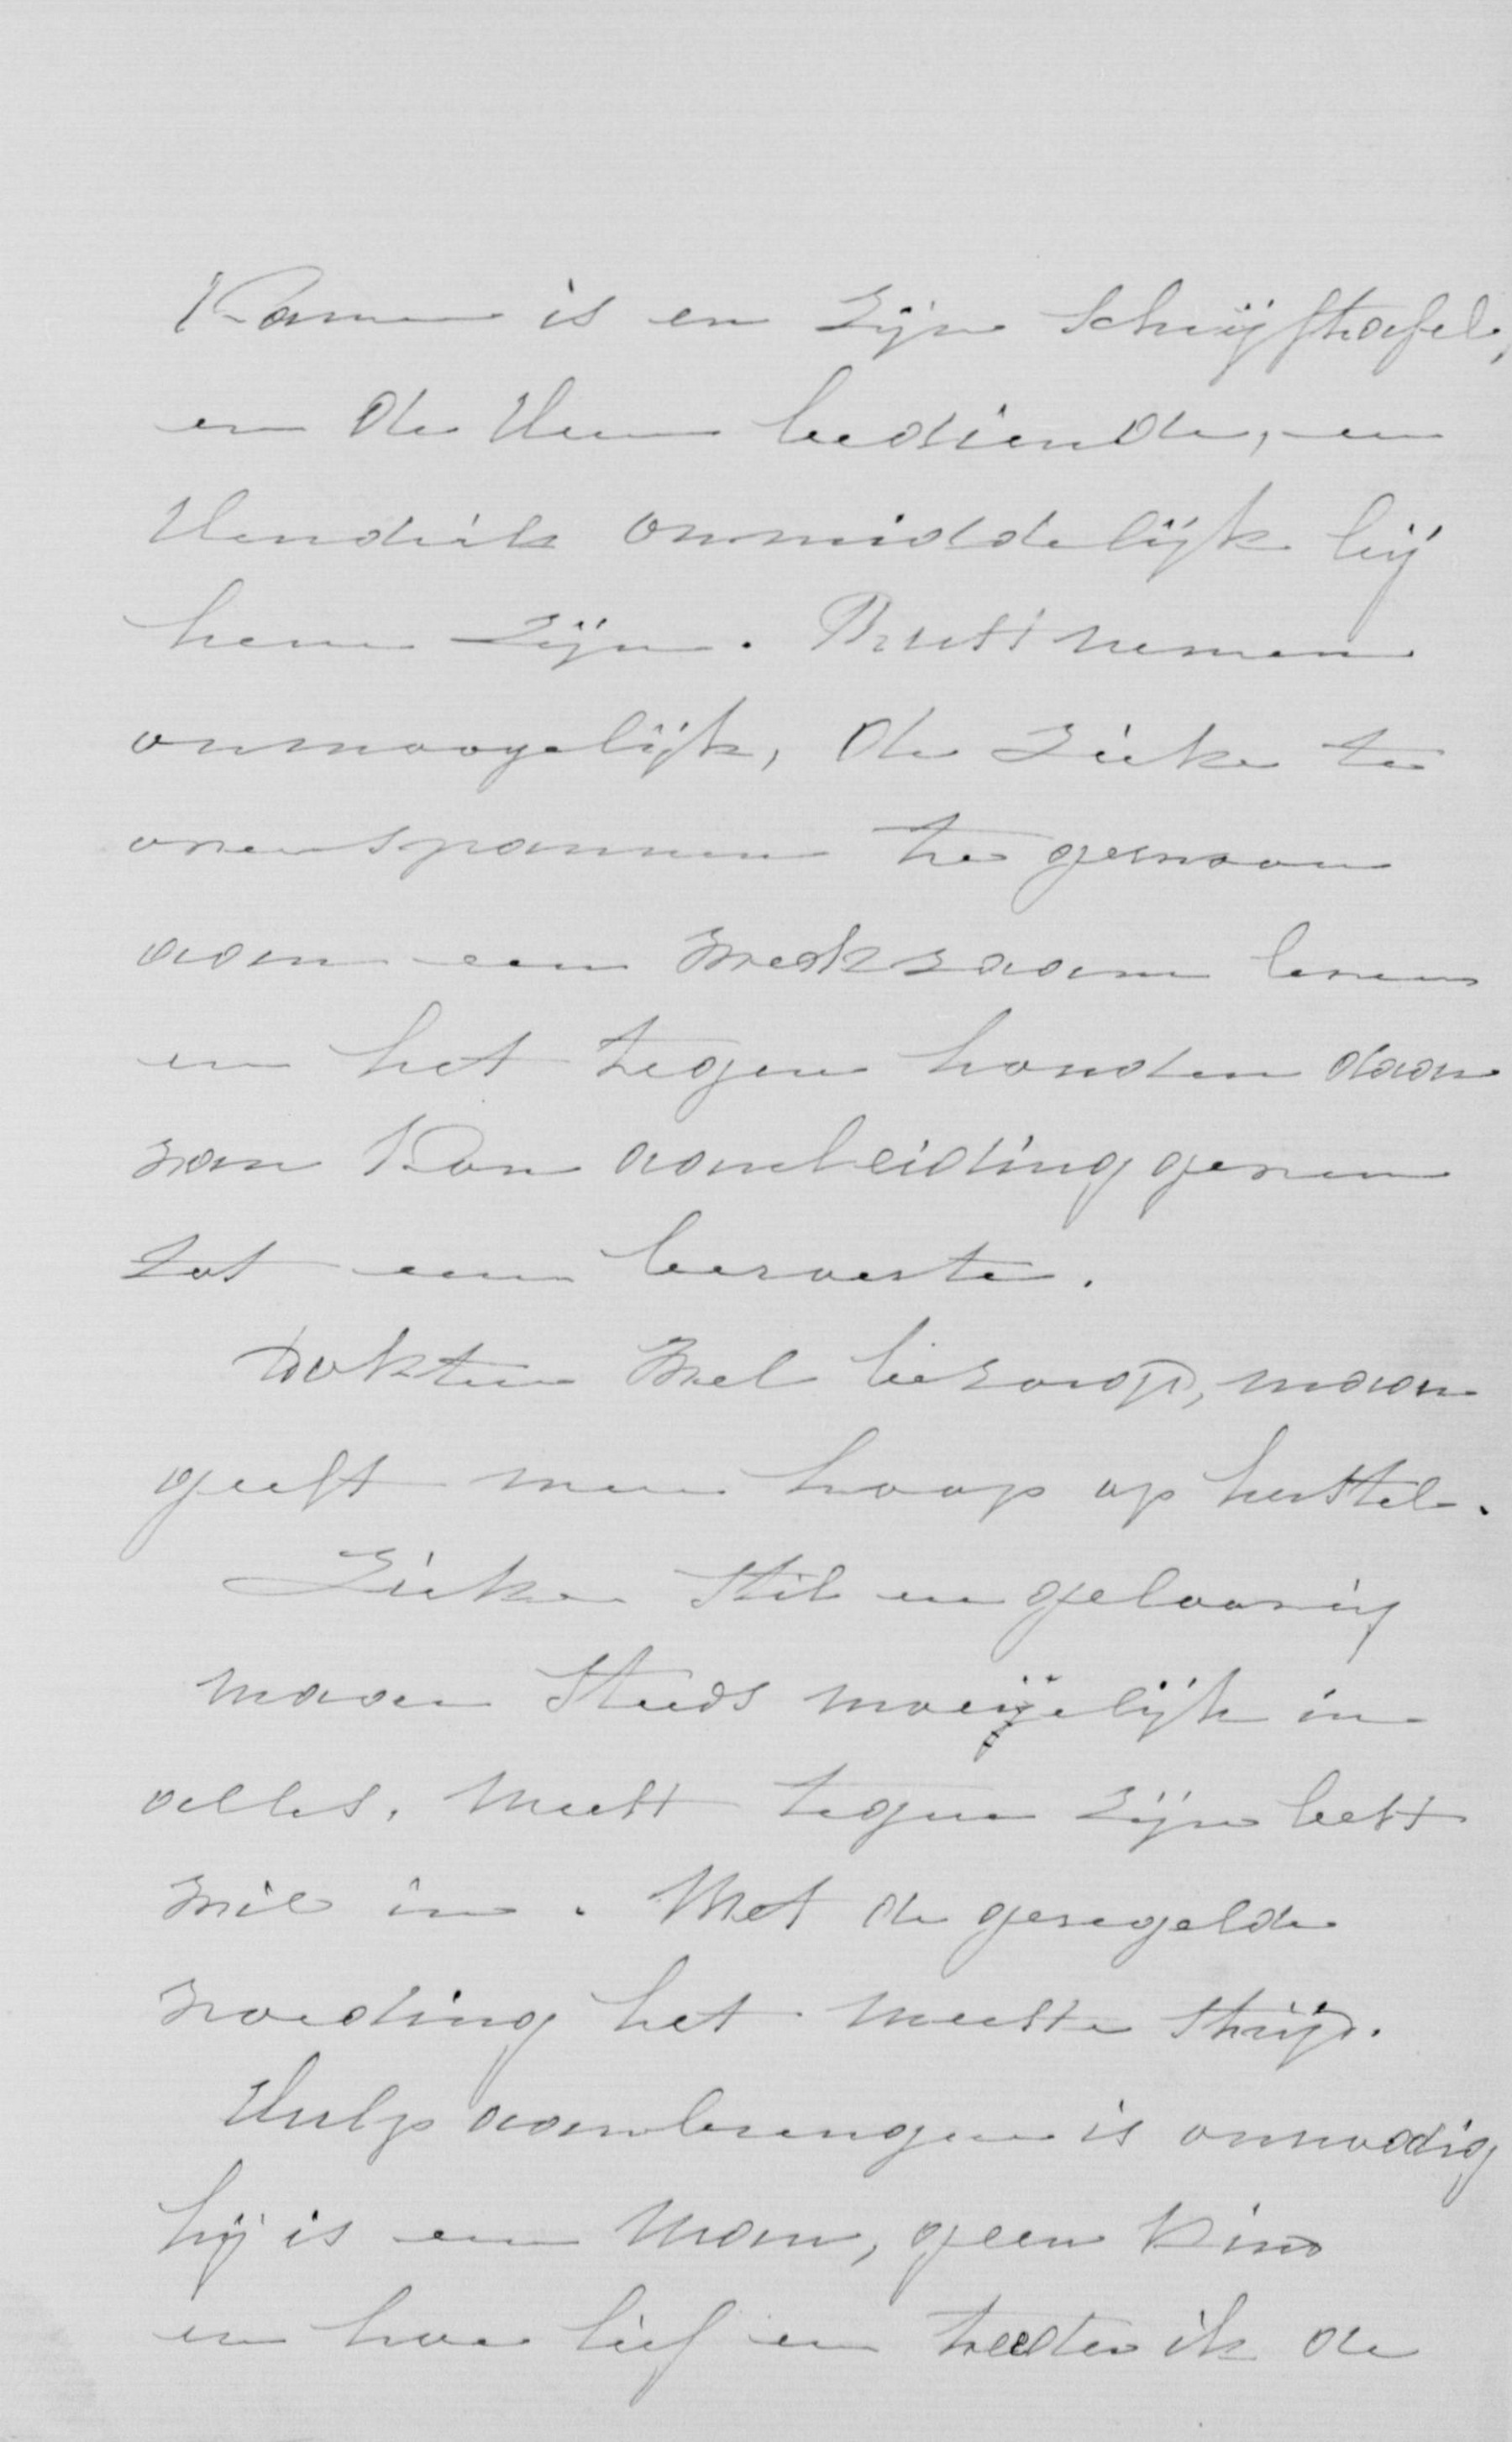 Kamer is en zijn Schrijftafel,
en de Heer bediende, en
Hendrik onmiddelijk bij
hem zijn. Rust nemen
onmoogelijk, de Zieke te
overspannen te gewoon
aan een werkzaam leven
en het tegen houden daar
van kan aanleiding geven
tot een beroerte.
Dokter wel bezorgd, maar
geeft men hoop op herstel.
Zieke stil en geloovig
maar steeds moeijelijk in
alles, meest tegen zijn best
wil in. Met de geregelde
voeding het meeste strijd.
Hulp aanbrengen is onnodig
hij is een man, geen kind
en hoe lief en teeder ik de